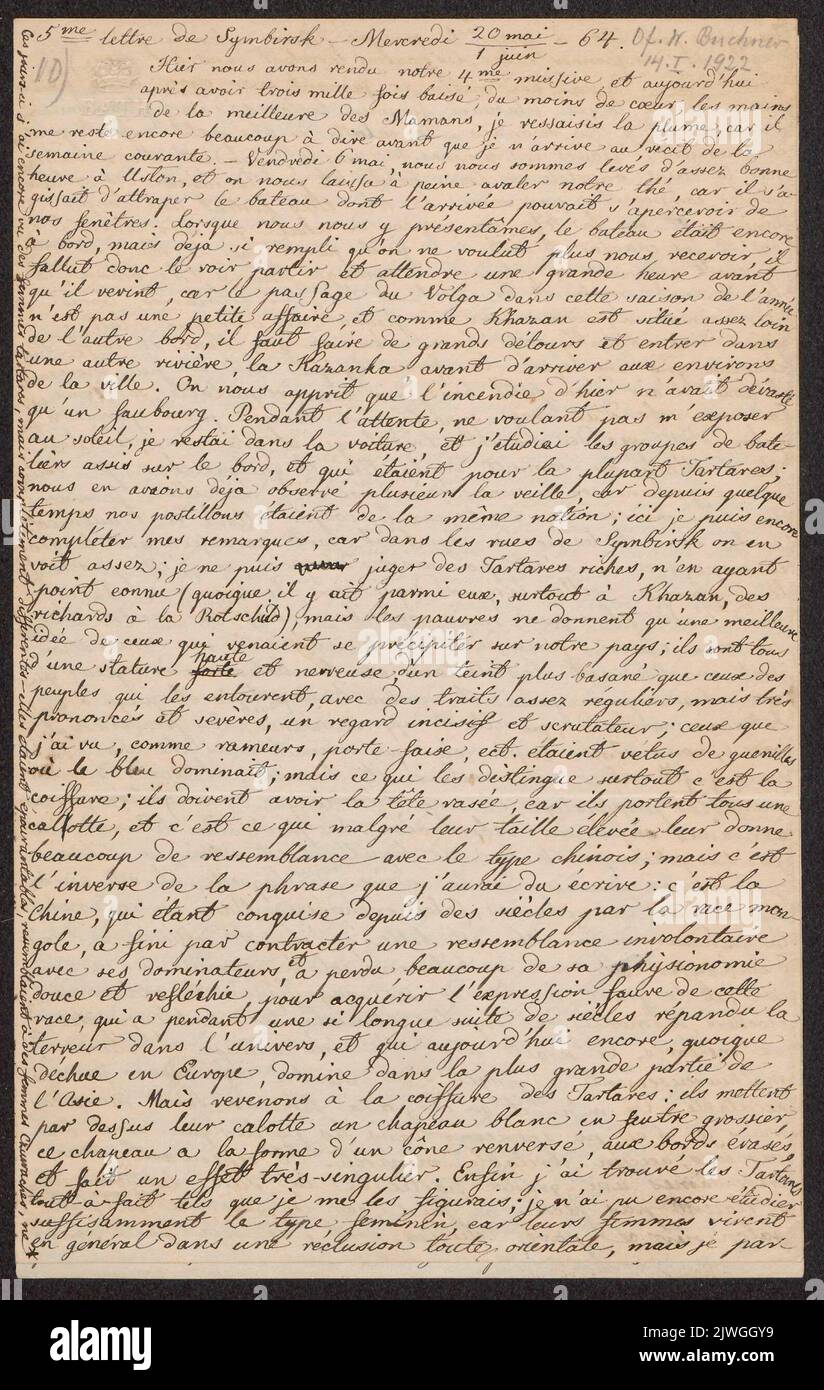 5me lettre de Symbirsk – Mercredi 20 mai / 1 juin – 64.
Of. W. Buchner
14. I. 1922
10)
Hier nous avons rendu notre 4me missive, et aujourd'hui
après avoir trois mille fois baisé, du moins de cœur, les mains
de la meilleure des Mamans, je ressaisis la plume, car il
me reste encore beaucoup à dire avant que je n'arrive au récit de la
semaine courante. – Vendredi 6 mai, nous nous sommes levés d'assez bonne
heure à Uslon, et on nous laissa à peine avaler notre thé, car il s'a-
gissait d'attraper le bateau dont l'arrivée pouvait s'apercevoir de
nos fenêtres. Lorsque nous nous y présentâmes, le bateau était encore
à bord, mais déjà si rempli qu'on ne voulut plus nous recevoir, il
fallut donc le voir partir et attendre une grande heure avant
qu'il revint, car le passage du Volga dans cette saison de l'année
n'est pas une petite affaire, et comme Khazan est situé assez loin
de l'autre bord, il faut faire de grands détours et entrer dans
une autre rivière, la Kazanka avant d'arriver aux environs
de la ville. On nous apprit que l'incendie d'hier n'avait dévasté
qu'un faubourg. Pendant l'attente, ne voulant pas m'exposer
au soleil, je restai dans la voiture, et j'étudiai les groupes de bate-
liers assis sur le bord, et qui étaient pour la plupart Tartares;
nous en avions déja observé plusieurs la veille, car depuis quelque
temps nos postillons étaient de la même nation; ici je puis encore
compléter mes remarques, car dans les rues de Symbirsk on en
voit assez; je ne puis juger des Tartares riches, n'en ayant
point connu (quoique il y ait parmi eux, surtout à Khazan, des
richards à la Rotschild) mais les pauvres ne donnent qu'une meilleure
idée de ceux qui venaient se précipiter sur notre pays; ils sont tous
d'une stature forte haute et nerveuse, d'un teint plus basané que ceux des
peuples qui les entourent, avec des traits assez réguliers, mais très
prononcés et sevères, un regard incisif et scrutateur; ceux que
j'ai vu, comme rameurs, porte faise, ect. étaient vetus de guenilles
où le bleu dominait; mais ce qui les distingue surtout c'est la
coiffure; ils doivent avoir la tête rasée, car ils portent tous une
calotte, et c'est ce qui malgré leur taille élevée leur donne
beaucoup de ressemblance avec le type chinois; mais c'est
l'inverse de la phrase que j'aurai du écrire: c'est la
Chine, qui étant conquise depuis des siècles par la race mon-
gole, a fini par contracter une ressemblance involontaire
avec ses dominateurs, et a perdu beaucoup de sa physionomie
douce et refléchie, pour acquérir l'expression fauve de cette
race, qui a pendant une si longue suite de siècles répandu la
terreur dans l'univers, et qui aujourd'hui encore, quoique
déchue en Europe, domine dans la plus grande partie de
l'Asie. Mais revenons à la coiffure des Tartares: ils mettent
par dessus leur calotte un chapeau blanc en feutre grossier,
ce chapeau a la forme d'un cône renversé, aux bords évasés,
et fait un effet très-singulier. Enfin j'ai trouvé les Tartares
tout-à-fait tels que je me les figurais; je n'ai pu encore étudier
suffisamment le type féminin, car leurs femmes vivent
en général dans une réclusion toute orientale, mais je par-
Ces jours-ci j'ai encore vu des femmes tartares, mais complètement différentes – elles étaient épouvantables, ressemblaient à des femmes
alamy
Image ID: 2JWGGY9
www.alamy.com